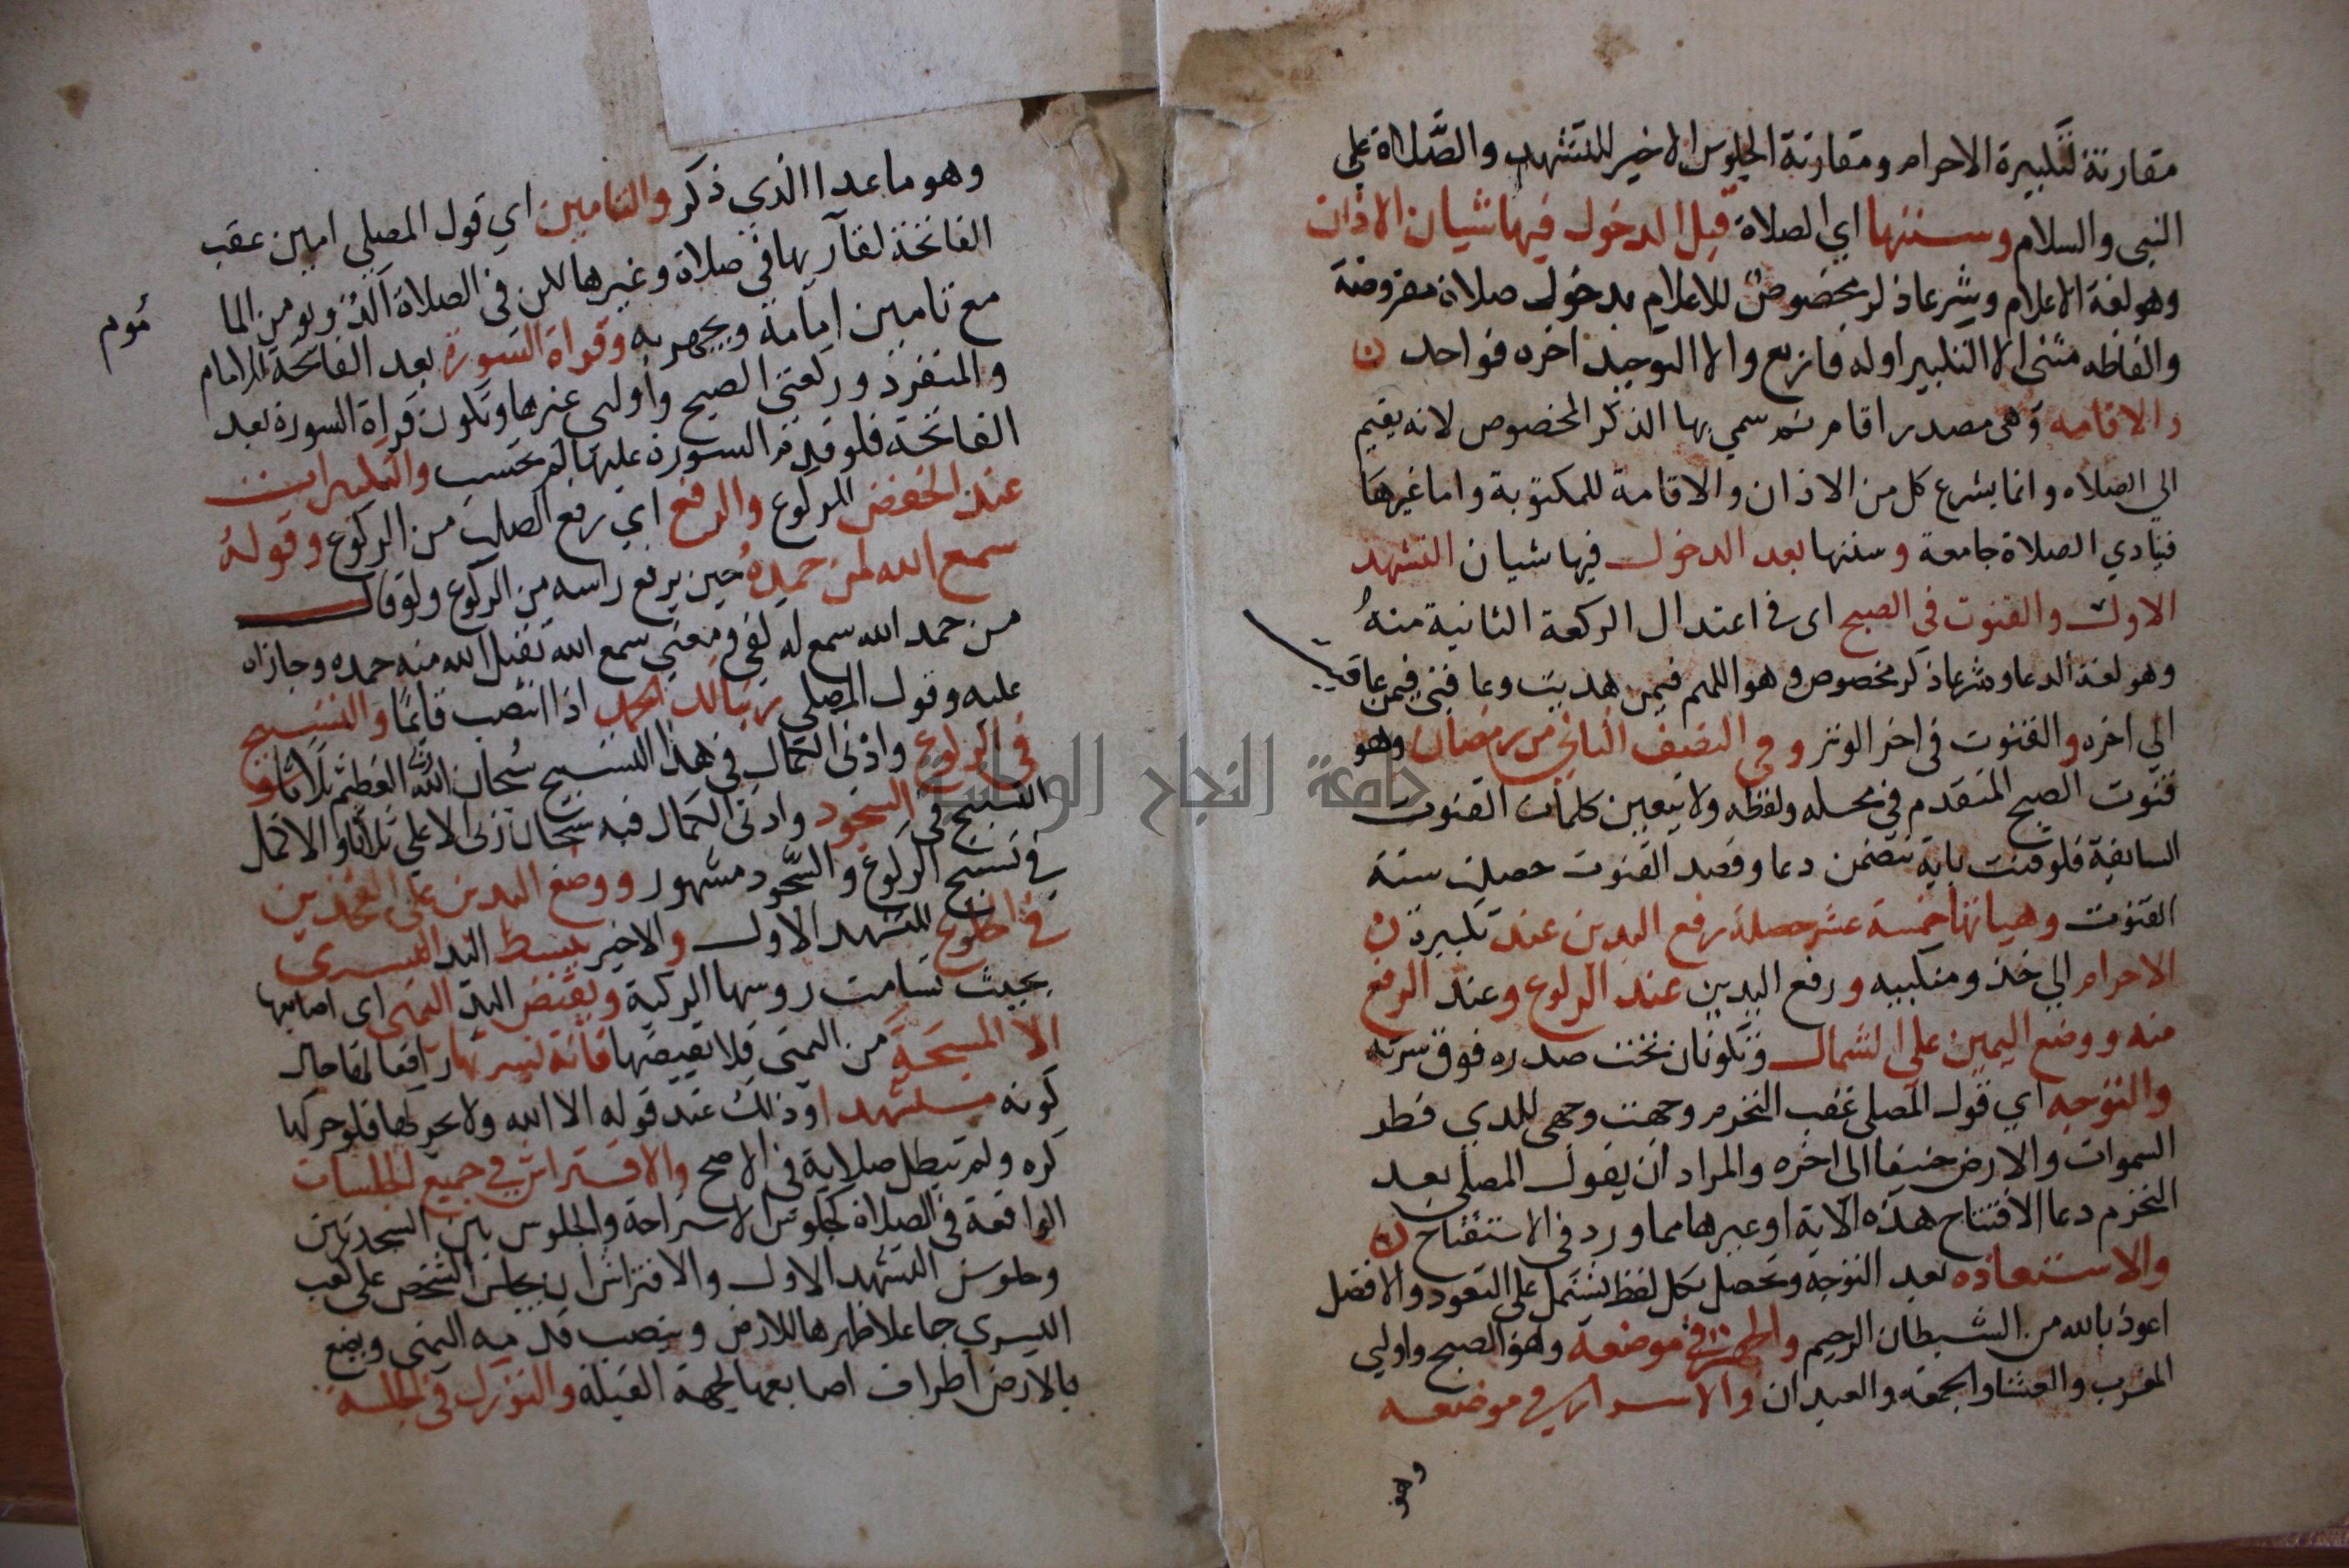 مقارنة لتكبيرة الاحرام ومقارنة الجلوس الاخير للتشهد والصلاة على
النبى والسلام وسننها اي الصلاة قبل الدخول فيها شيان الاذان
وهو لغة الاعلام وشرعا ذكر مخصوص للاعلام بدخول صلاة مفروضة
والفاظه مثنى الا التكبير اوله فاربع والا التوحيد اخره فواحد
والاقامه وهى مصدر اقام ثم سمي بها الذكر المخصوص لانه يقيم
الي الصلاه وانما يشرع كل من الاذان والاقامة للمكتوبة واما غيرها
فينادي الصلاة جامعة وسننها بعد الدخول فيها شيان التشهد
الاول والقنوت في الصبح اى في اعتدال الركعة الثانية منه
وهو لغة الدعا وشرعا ذكر مخصوص وهو اللهم فيمن هديت وعافني فيمن عافيت
الي اخره والقنوت في اخر الوتر وفي النصف الثاني من رمضان وهو
قنوت الصبح المتقدم في محله ولفظه ولا يتعين كلمات القنوت
السابقة فلو قنت باية تتضمن دعا وقصد القنوت حصلت سنة
القنوت وهياتها خمسة عشر خصلة رفع اليدين عند تكبيرة
الاحرام الي حذو منكبيه ورفع اليدين عند الركوع وعند الرفع
منه ووضع اليمين على الشمال وتكونان تحت صدره فوق سرته
والتوجه اي قول المصلى عقب التحرم وجهت وجهى للذي فطر
السموات والارض حنيفا الى اخره والمراد ان يقول المصلى بعد
التحرم دعا الافتتاح هذه الاية او غيرها مما ورد في الاستفتاح
والاستعاذه بعد التوجه وتحصل بكل لفظ يشتمل على التعوذ والافضل
اعوذ بالله من الشيطان الرجيم والجهر في موضعه وهو الصبح واولي
المغرب والعشا والجمعة والعيدان والاسرار في موضعه
وهو
وهو ما عدا الذي ذكر والتامين اي قول المصلي امين عقب
الفاتحة لقاريها في صلاة وغيرها لكن في الصلاة آكد ويومن الما
موم
مع تامين امامه ويجهر به وقراة السورة بعد الفاتحة للامام
والمنفرد وركعتي الصبح واولى غيرها وتكون قراة السورة بعد
الفاتحة فلو قدم السورة عليها لم تحسب والتكبيرات
عند الخفض للركوع والرفع اي رفع الصلب من الركوع وقوله
سمع الله لمن حمده حين يرفع راسه من الركوع ولو قال
من حمد الله سمع له كفي ومعني سمع الله تقبل الله منه حمده وجازاه
عليه وقول المصلي ربنا لك الحمد اذا انتصب قايما والتسبيح
في الركوع وادنى الكمال في هذا التسبيح سبحان ربي العظيم ثلاثا و
التسبيح في السجود وادنى الكمال فيه سبحان ربى الاعلى ثلاثا والاكمل
في تسبيح الركوع والسجود مشهور ووضع اليدين على الفخذين
في الجلوع للتشهد الاول والاخير يبسط اليد اليسرى
بحيث تسامت روسها الركبة ويقبض اليد اليمنى اى اصابعها
الا المسبحة من اليمنى فلا يقبضها فانه يشير بها رافعا لها حال
كونه متشهدا وذلك عند قوله الا الله ولا يحركها فلو حركها
كره ولم تبطل صلاته في الاصح والافتراش في جميع الجلسات
الواقعة في الصلاة كجلوس الاستراحة والجلوس بين السجدتين
وجلوس التشهد الاول والافتراش ان يجلس الشخص على كعب
اليسري جاعلا ظهرها للارض وينصب قدمه اليمنى ويضع
بالارض اطراف اصابعها لجهة القبلة والتورك في الجلسة
جامعة النجاح الوطنية